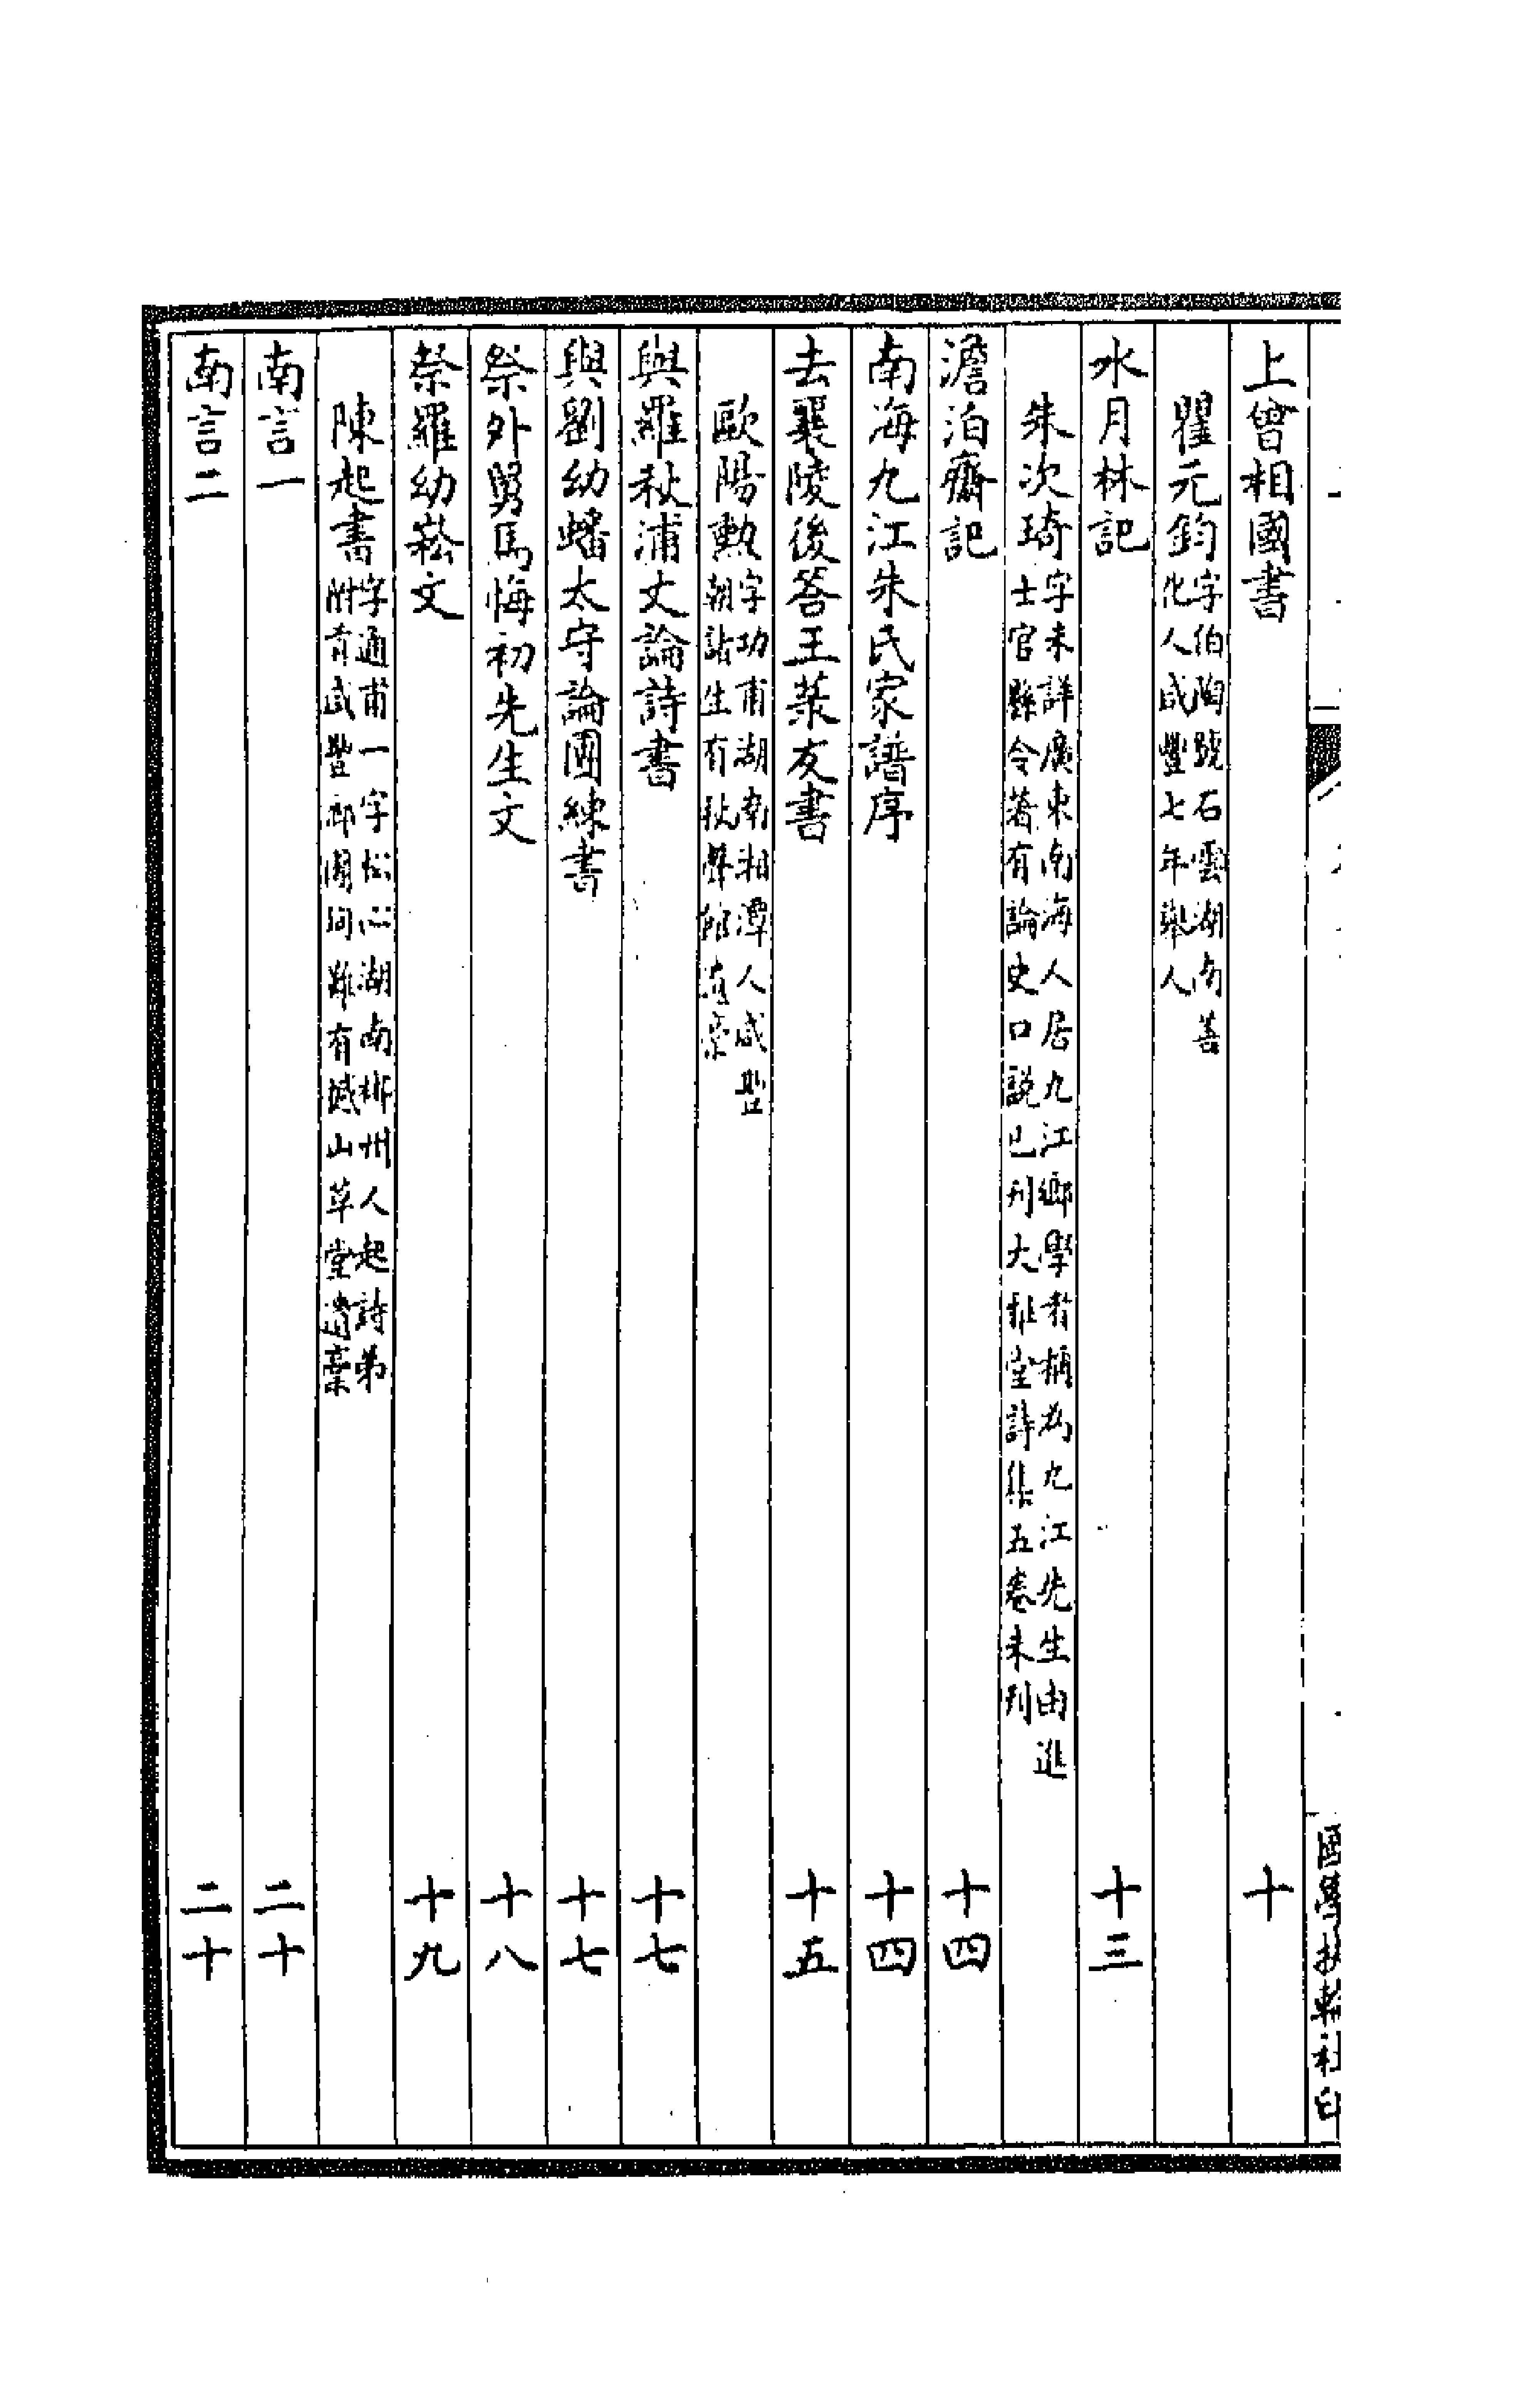 上曾相國書 十
瞿元鈞 字伯陶號石雲湖南善
化人咸豐七年舉人
水月林記 十三
朱次琦 字未詳廣東南海人居九江鄉學者稱為九江先生由進
士官縣令著有論史口説已刊大雅堂詩集五卷未刊
澹泊齋記 十四
南海九江朱氏家譜序 十四
去襄陵後答王菉友書 十五
歐陽勳 字功甫湖南湘潭人咸豐
朝諸生有秋聲館遺稾
與羅秋浦丈論詩書 十七
與劉幼蟠太守論團練書 十七
祭外舅馬悔初先生文 十八
祭羅幼崧文 十九
陳起書 字通甫一字松心湖南郴州人起詩弟
附貢咸豐 間殉難有撼山草堂遺稾
南言一 二十
南言二 二十
國學扶輪社印